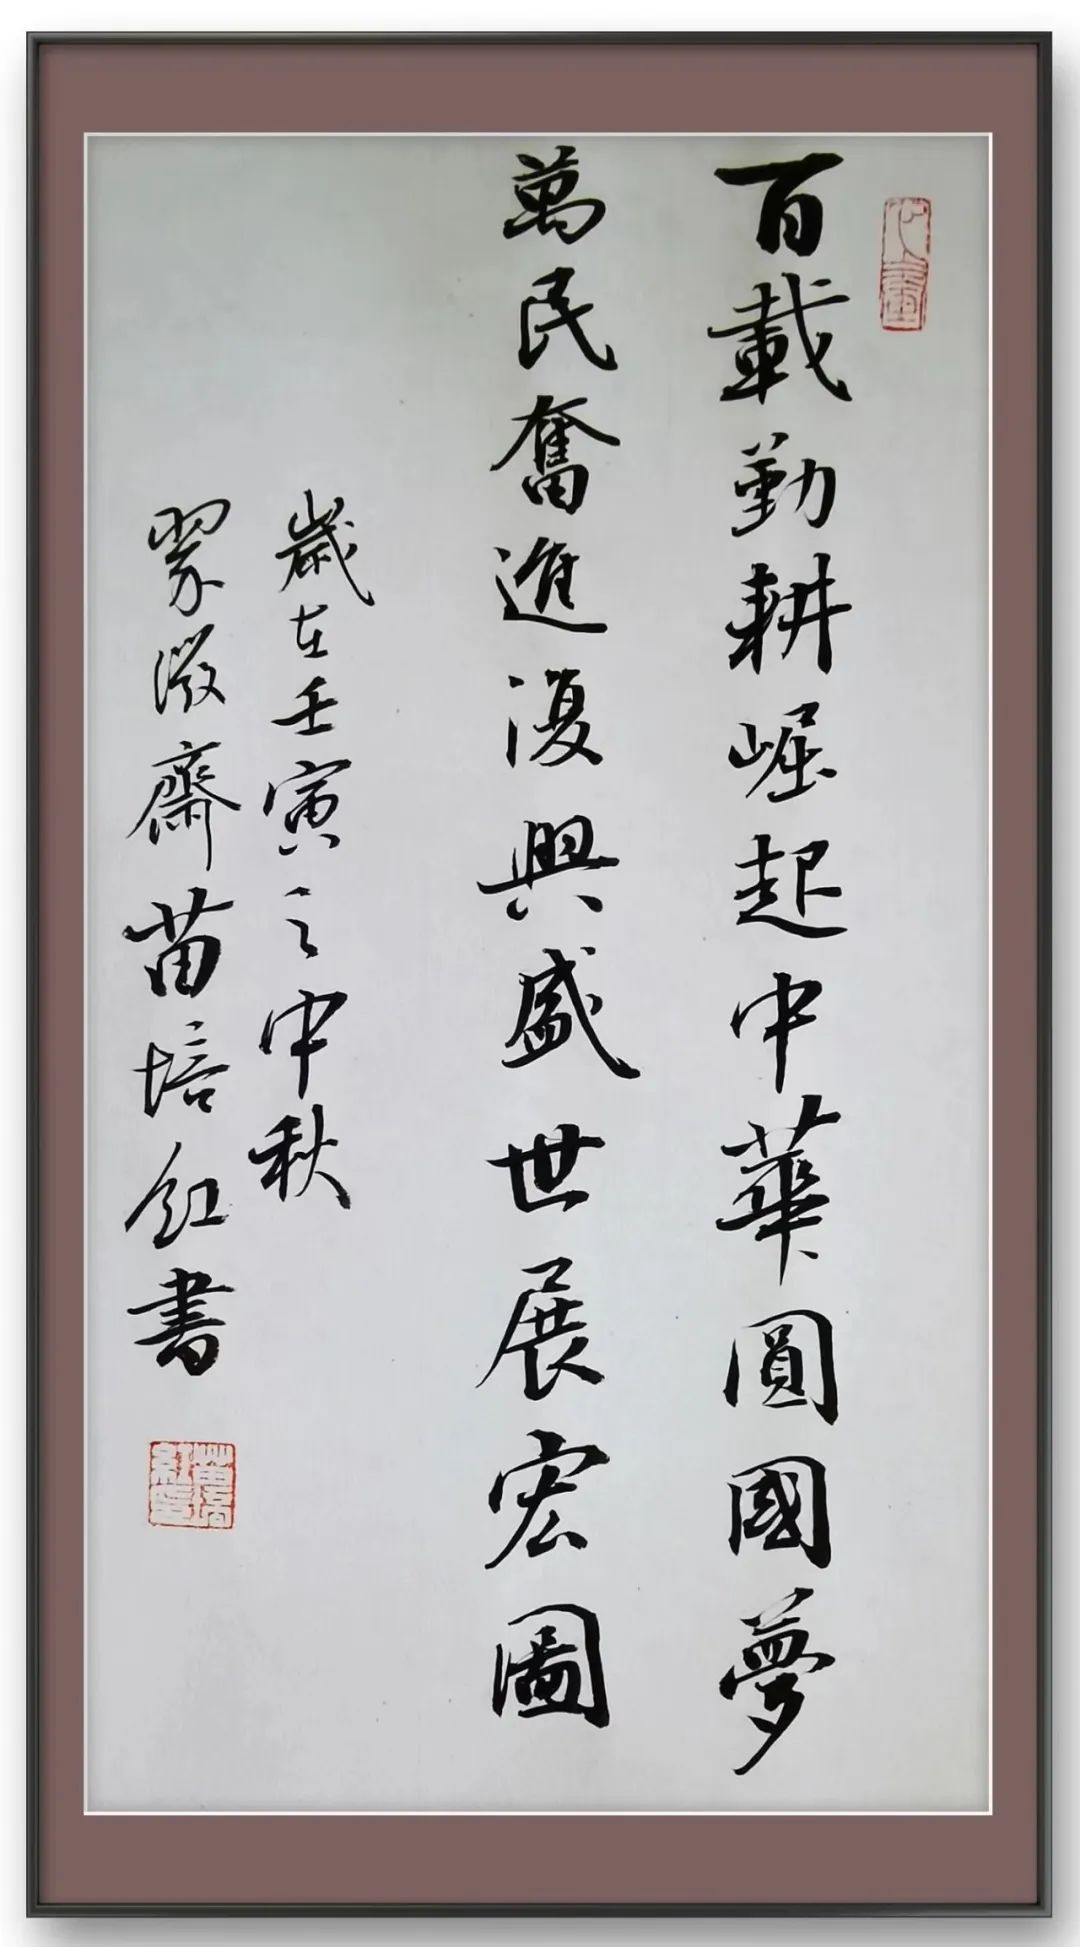 百載勤耕崛起中華圓國夢
萬民奮進復興盛世展宏圖
歲在壬寅之中秋
翠微齋苗培紅書